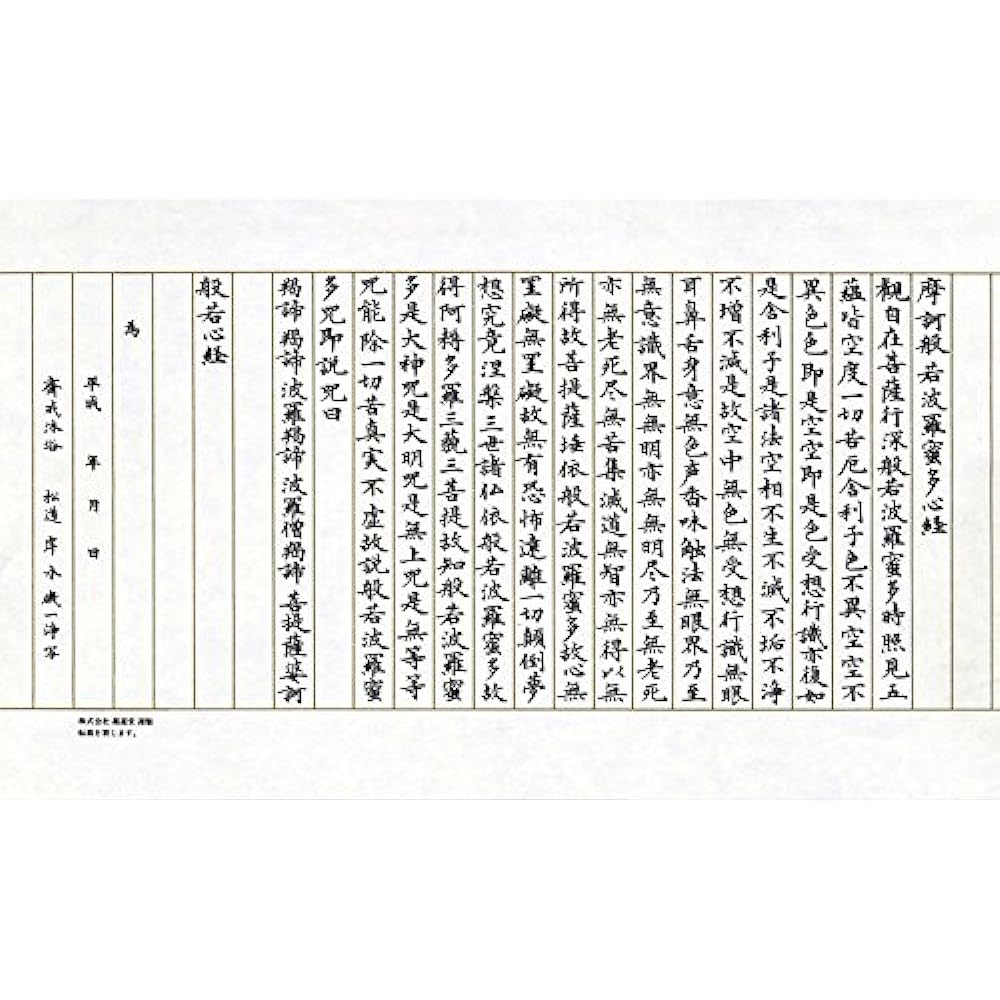 摩訶般若波羅蜜多心経
観自在菩薩行深般若波羅蜜多時照見五
蘊皆空度一切苦厄舎利子色不異空空不
異色色即是空空即是色受想行識亦復如
是舎利子是諸法空相不生不滅不垢不浄
不増不減是故空中無色無受想行識無眼
耳鼻舌身意無色声香味触法無眼界乃至
無意識界無無明亦無無明尽乃至無老死
亦無老死尽無苦集滅道無智亦無得以無
所得故菩提薩埵依般若波羅蜜多故心無
罣礙無罣礙故無有恐怖遠離一切顛倒夢
想究竟涅槃三世諸仏依般若波羅蜜多故
得阿耨多羅三藐三菩提故知般若波羅蜜
多是大神咒是大明咒是無上咒是無等等
咒能除一切苦真実不虚故説般若波羅蜜
多咒即説咒曰
羯諦羯諦波羅羯諦波羅僧羯諦菩提薩婆訶
般若心経
為
平成 年 月 日
斎戒沐浴 松道
株式会社
転載を禁じます。